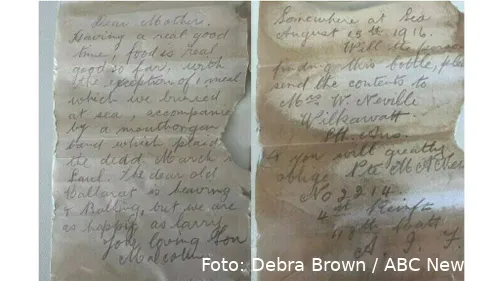 Dear Mother,
Having a real good
time, food is real
good so far, with
the exception of 1 meal
which we buried
at sea, accompanied
by a mouthorgan
band which plaid
the dead March in
Saul. The dear old
Ballarat is heaving
& Rolling, but we are
as happy as Larry
Your loving Son
Malcolm
Somewhere at Sea
August 15th 1916.
Will the person
finding this bottle, please
send the contents to
Mrs W. Neville
Wilkawatt
Sth. Aus.
& you will greatly
oblige Pte M A Neville
No 2,214.
4th Reinft
48th Batt
A. I. F.
Foto: Debra Brown / ABC New